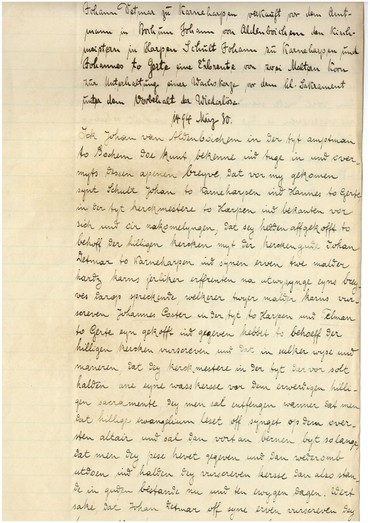 Johann Detmar zu Karneharpen verkauft vor dem Amt-
mann in Bochum Johann von Aldenboichem den Kirch-
meistern in Harpen Schult Johann zu Karneharpen und
Johannes to Gerte eine Erbrente von zwei Maltern Korn
zur Unterhaltung einer Wachskerze vor dem hl. Sakrament
unter dem Vorbehalt der Wiederlöse.
1494 März 30.
Ick Johan van Aldenböchem in der tyt amptman
to Bochem doe kunt bekenne und tuge in und over-
myts dessen apenen breyve dat vor my gekomen
synt Schult Johan to Karneharpen ind Hannes to Gerte
in der tyt kerckmestere to Harpen ind bekanten vor
sich und oir nakomelyngen, dat sey hedden affgekofft to
behoff der hilligen kercken myt der kercken gude Johan
Detmar to Karneharpen ind synen erven twe malder
hardz karns jerliker erffrenten na utwysynge eyne brey-
ves darop sprekende welkerer twyer malder karns vur-
screven Johannes Coster in der tyt to Harpen und Telman
to Gerte eyn gekofft ind gegeven hebbet to behoeff der
hilligen kercken vurscreven und dat in sulker wyse und
maneren, dat dey kerckmestere in der tyt dar vor solt
halden ene eyne waskersse vor dem erwerdigen hilli-
gen sacramente dey men sal entfengen wanner dat men
dat hillige evangelium leset off synget op dem over-
sten altair und sal dan vort an bernen byt so lange
dat men dey pese hevet gegeven und dan wederomb
utdoen ind halden dey vurscreven kersse dan also stan-
de in guden bestande nu und ten ewygen dagen. Wert
sake dat Johan Detmar off syne erven vurscreven dey